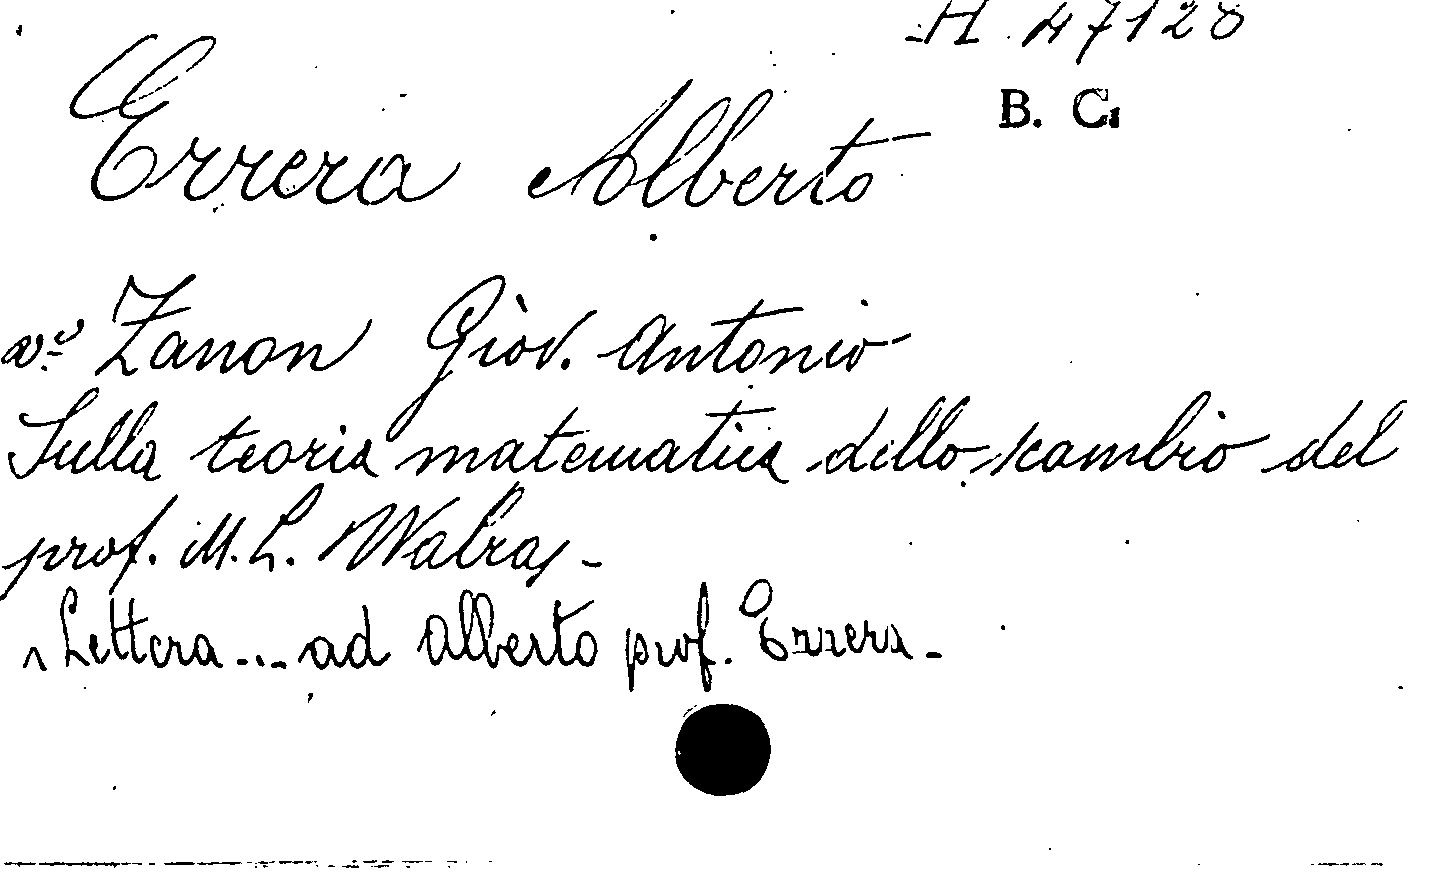 H 47128
B. C.
Errera Alberto
vᵈ Zanon Giov. Antonio
Sulla teoria matematica dello scambio del
prof. M. L. Walras -
Lettera ... ad Alberto prof. Errera -